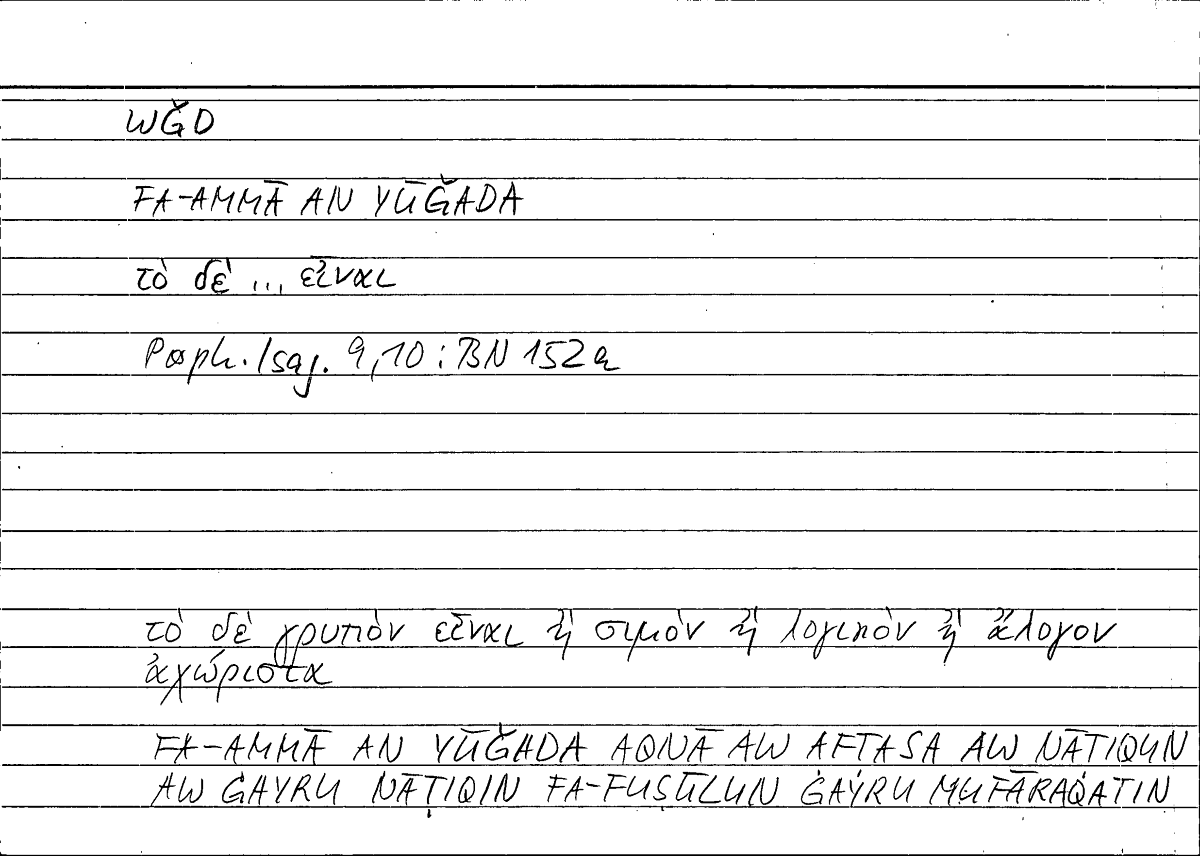 WǦD
FA-AMMĀ AN YŪǦADA
τὸ δὲ ... εἶναι
Porph. Isag. 9,10 : BN 152a
τὸ δὲ γρυπὸν εἶναι ἢ σιμὸν ἢ λογικὸν ἢ ἄλογον
ἀχώριστα
FA-AMMĀ AN YŪǦADA AQNĀ AW AFTASA AW NĀṬIQUN
AW ĠAYRU NĀṬIQIN FA-FUṢŪLUN ĠAYRU MUFĀRAQATIN